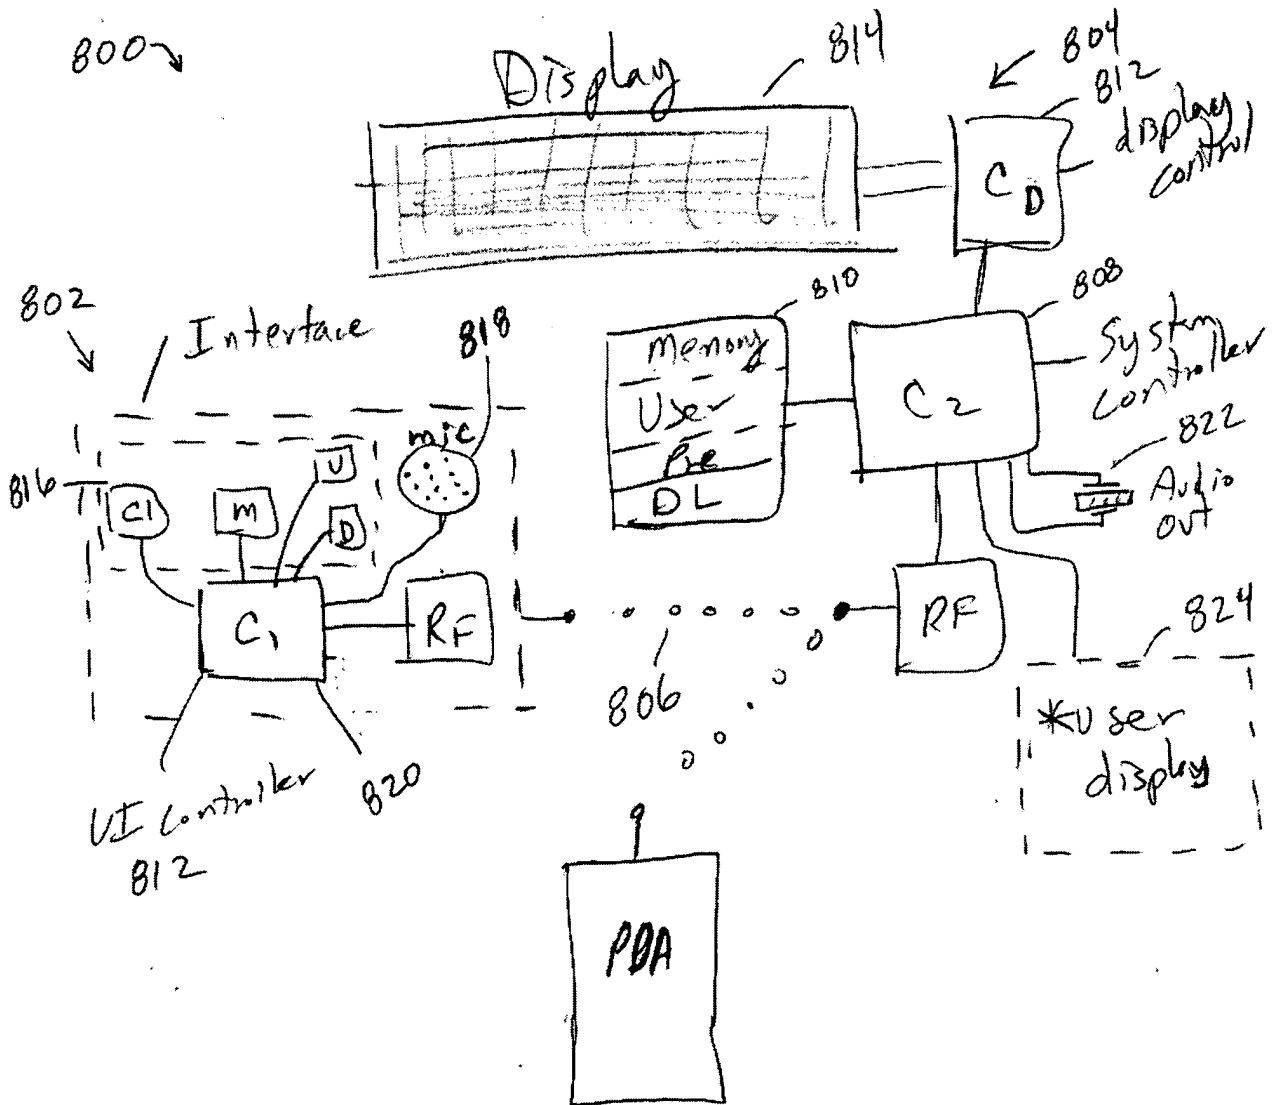 800
Display
814
804
812
display
control
C D
802
Interface
818
810
808
Memory
User
Pre
DL
C2
System
controller
822
Audio
out
mic
816
C1
M
U
D
C1
RF
RF
806
824
*User
display
UI Controller
812
820
PDA